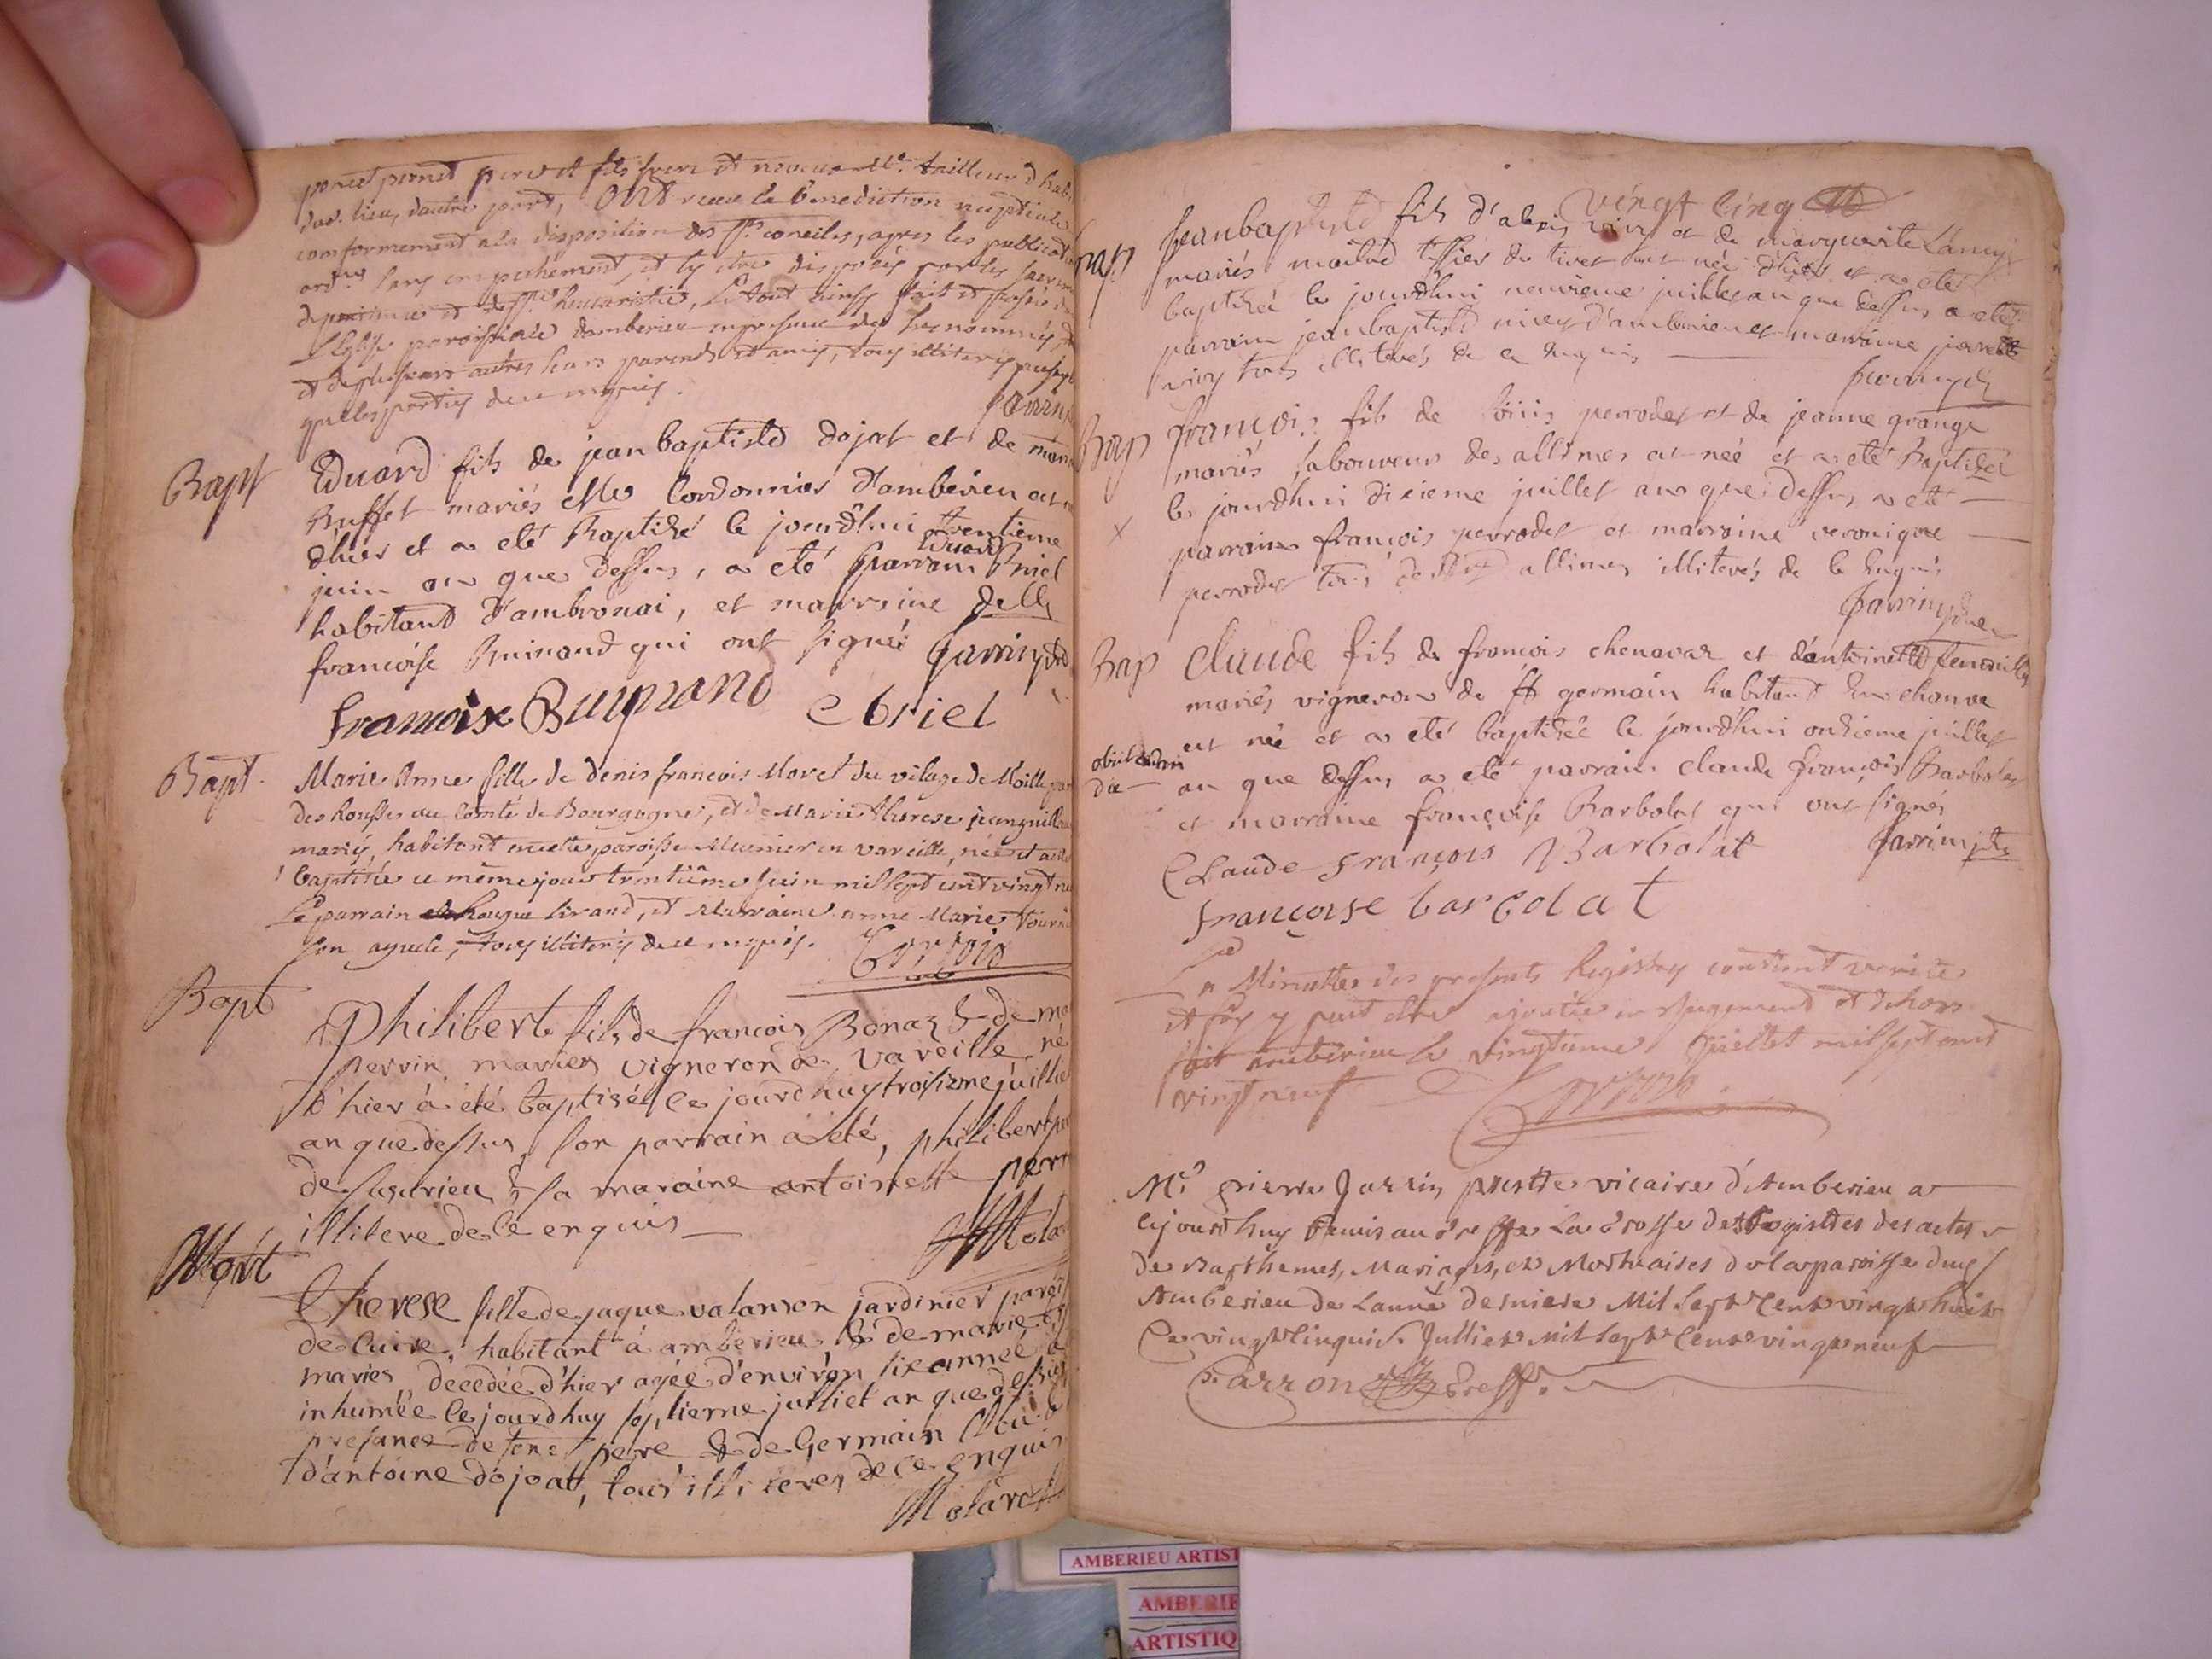 pernet pernet pere et fils frere et neveu Me. tailleur d'hab
dud. lieu, d'autre part, ont receu la benediction nuptiale
conformement a la disposition des Sts conciles, apres les publicati
ordres sans empeschement, et s'y etre disposés par les sacrem
de penitence et de Ste Eucaristie, le tout ainsy fait et passé da
l'Eglise paroissiale d'amberieu en presence des susnommés, et
et de plusieurs autres leurs parents et amis, tous illiteres
que les parties de ce enquis.
Bapt
Eduard fils de jean baptiste dojat et de mari
Buffet mariés Me Cordonnier d'amberieu est n
d'hier et a eté Baptizé le jourdhui trentieme
juin an que dessus, a eté parrain Eduard Briel
habitant d'ambronai, et marraine delle
francoise Buinand qui ont signés Jarrin ptre
francoise Buynand Ebriel
Bapt.
Marie Anne fille de denis francois Morel du vilage de
des housses au Comté de Bourgogne, et de Marie Therese jeanguill
mariés, habitant en cette paroisse Meunier en vareille, née et a eté
baptisée ce même jour trentième juin mil sept cent vingt ne
Le parrain hugue Sirand, et Marraine anne Marie
son ayeule, tous illiterés de ce enquis.
Bapt
Philibert fils de francois Bonaz & de ma
perrin mariés vigneron de Vareille né
d'hier à eté baptisé ce jourdhuy troisizme juillie
an que dessus, son parrain à eté, philibert per
de Jujurieu & sa maraine antoinette perr
illitere de ce enquis
Molar
Mort
Therese fille de jaque valanson jardinier paroi
de Cuire, habitant à amberieu, & de marie
mariés decedée d'hier agée d'environ six année a
inhumée ce jourdhuy septieme julliet an que dessus
presance de sont pere & de Germain
d'antoine dojoat, tous illiteres de ce enquis
Molard
vingt cinq
Bap
jeanbaptiste fils d'alexis vivy et de marguerite Lancy
mariés maitre tissier de tiret est née d'hier et a eté
baptizée le jourdhui neuvieme juillet an que dessus a eté
parrain jeanbaptiste vivy d'amberieu et marraine pierrette
vivy tous illiterés de ce enquis
Bap
françois fils de loüis perrodet et de jeanne grange
mariés laboureur des allimes est née et a eté Baptizé
le jourdhui dixieme juillet an que dessus a eté
parrain françois perrodet et marraine veronique
perrodet tous desdit allimes illiterés de ce enquis
Jarrin ptre
Bap
Claude fils de françois chenavaz et d'antoinette
mariés vigneron de st germain habitant
est née et a eté baptizée le jourdhui onzieme juillet
obiit eadem
die
an que dessus a eté parrain claude françois Barbolat
et marraine françoise Barbolat qui ont signés
Claude françois Barbolat Jarrin ptre
françoise barbolat
La Minutte des presents Registres contient verité
et foy y peut etre ajoutée en jugement et dehors
fait amberieu le vingtieme juillet mil sept cent
vingt neuf
Mre pierre Jarrin prestre vicaire d'Amberieu a
cejourd'huy remis au greffe La Grosse des Registres des actes
de Bapthemes, Mariages, et Mortuaires de la paroisse dud
Amberieu de L'année derniere Mil Sept Cent vingt huit
Ce vingt cinquie Julliet Mil Sept Cent vingt neuf
Carron Greff.
AMBERIEU ARTIST
AMBERIE
ARTISTIQ